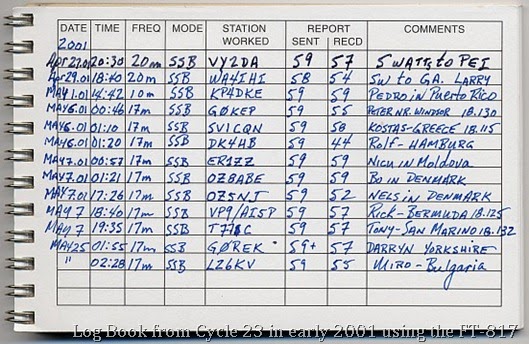 DATE TIME FREQ MODE STATION WORKED REPORT SENT RECD COMMENTS
2001
Apr27.01 20:30 20m SSB VY2DA 59 57 5 WATTS to PEI
Apr29.01 18:40 20m SSB WA4IHI 58 54 5W to GA. LARRY
MAY1.01 14:42 10m SSB KP4DKE 59 59 PEDRO in Puerto Rico
MAY6.01 00:46 17m SSB GØKEP 59 55 PETER NR. WINDSOR 18.130
MAY6.01 01:10 17m SSB SV1CQN 59 58 KOSTAS-GREECE 18.115
MAY6.01 01:20 17m SSB DK4HB 59 44 Rolf-HAMBURG
MAY7.01 00:57 17m SSB ER1ZZ 59 59 in Moldova
MAY7.01 01:21 17m SSB OZ8ABE 59 59 BO in DENMARK
MAY7.01 17:26 17m SSB OZ5NJ 59 52 NELS in DENMARK
MAY7 18:40 17m SSB VP9/AI5P 59 57 Rick-BERMUDA 18.125
MAY7 19:35 17m SSB 59 57 TONY-SAN MARINO 18.132
MAY25 01:55 17m SSB GØREK 59+ 57 DARRYN YORKSHIRE
" 02:28 17m SSB LZ6KV 59 55 MIRO-Bulgaria
Log Book from Cycle 23 in early 2001 using the FT-817